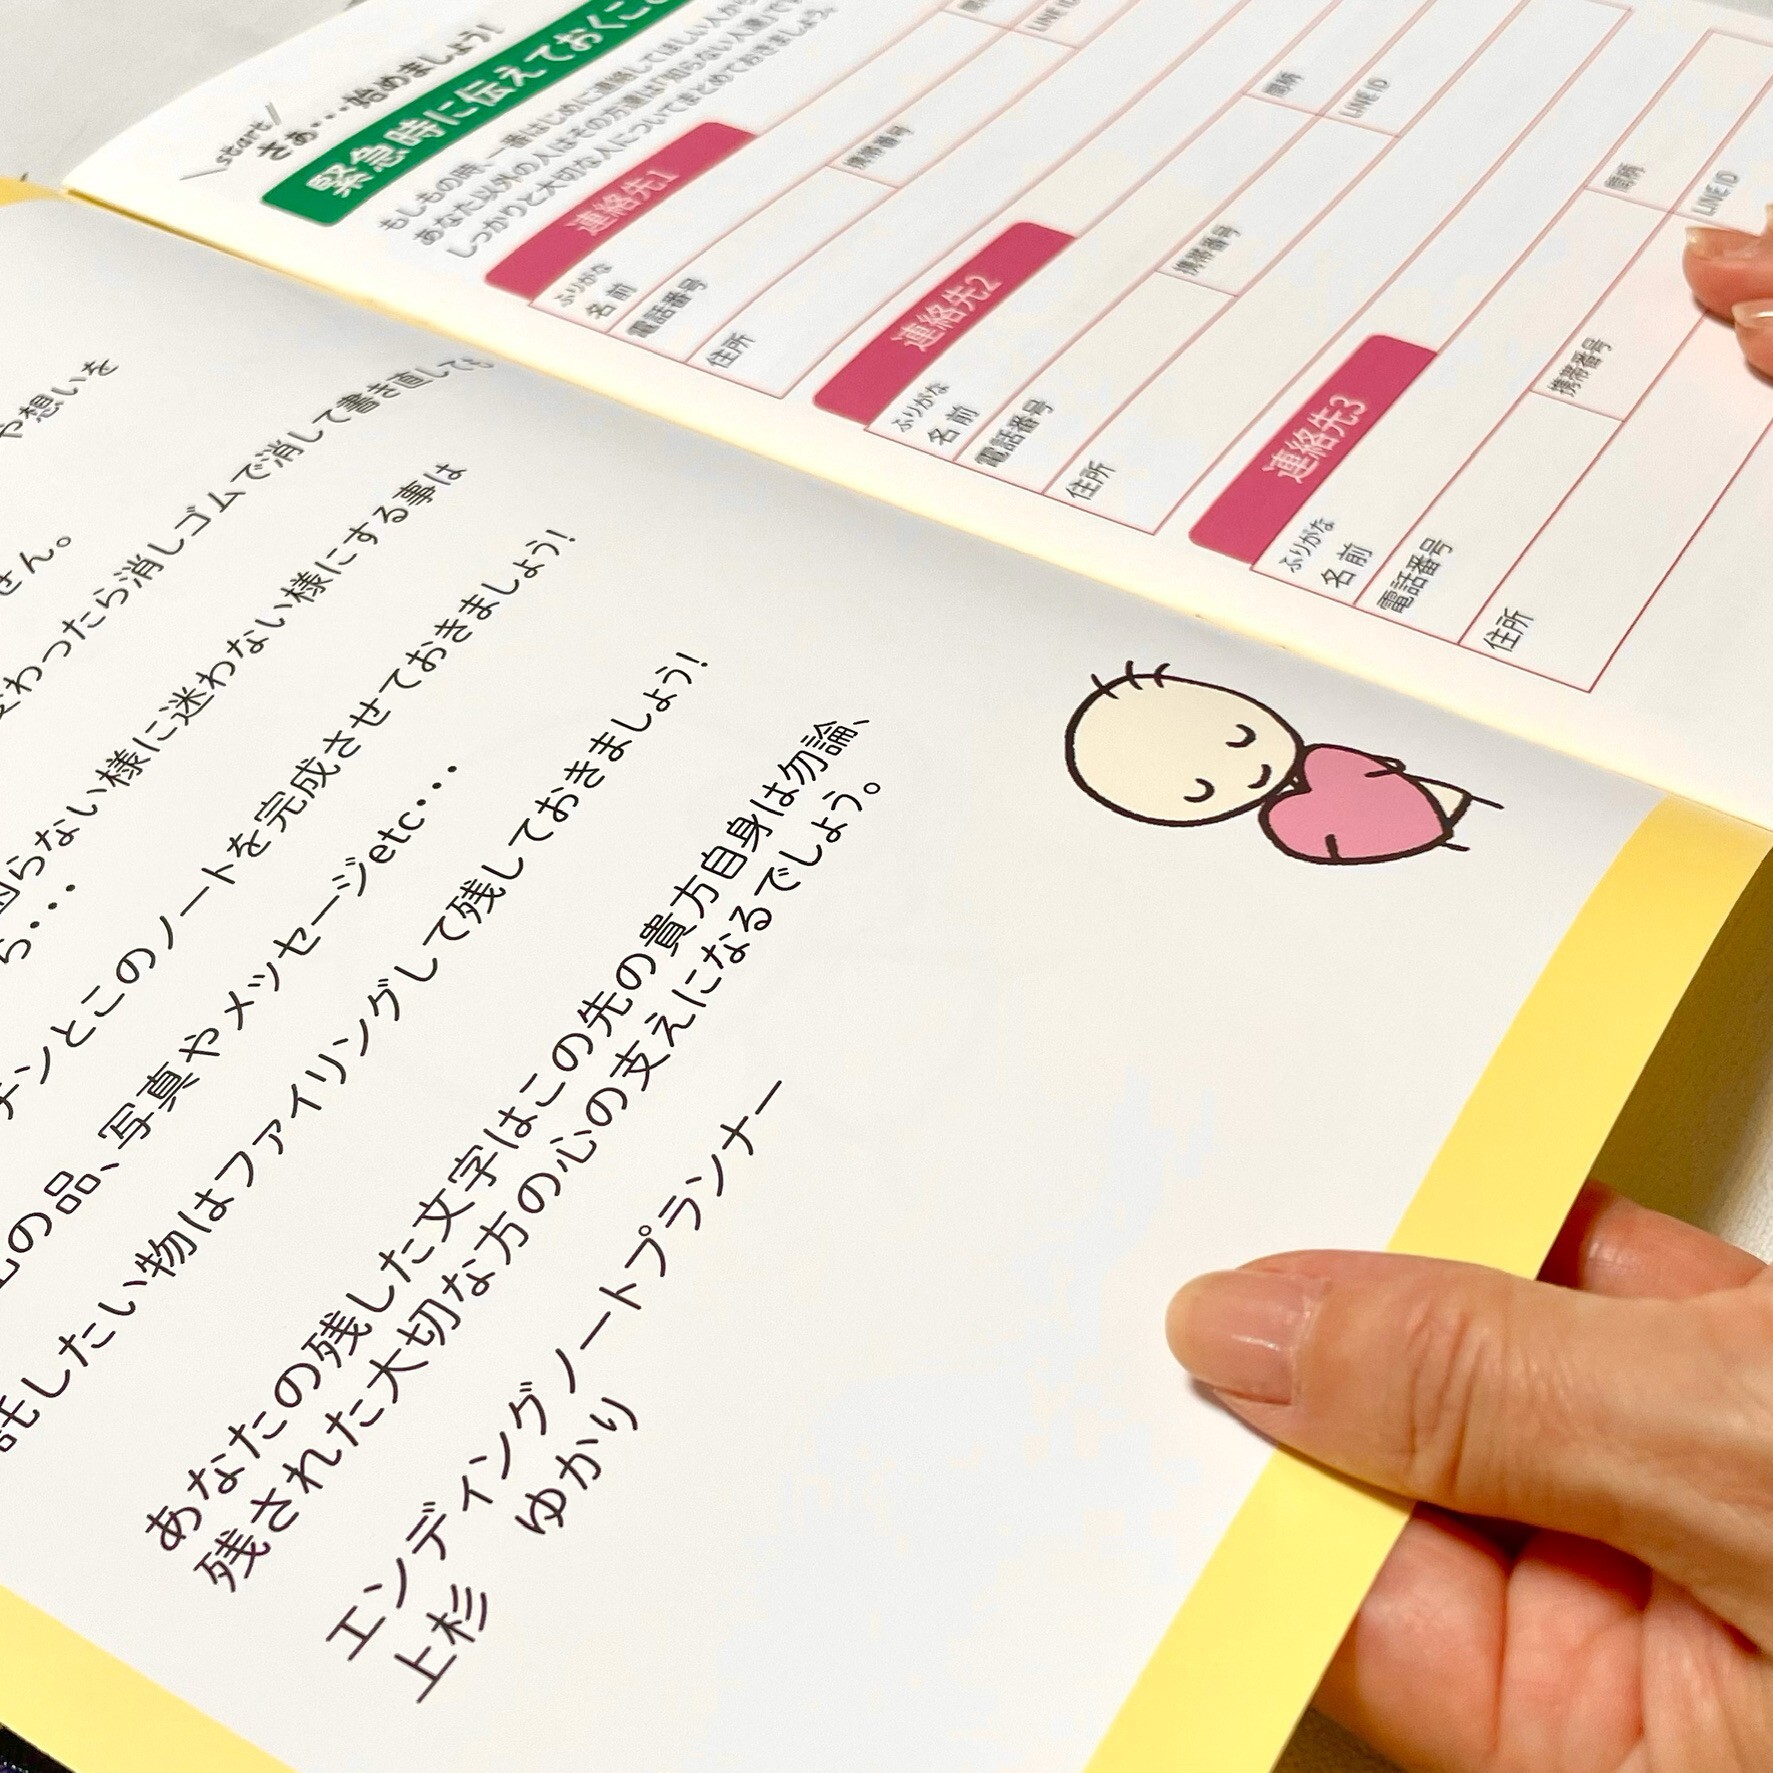 や想いを
せん。
変わったら消しゴムで消して書き直しても
困らない様に迷わない様にする事は
ら・・・
チンとこのノートを完成させておきましょう!
の品、写真やメッセージetc・・・
託したい物はファイリングして残しておきましょう!
あなたの残した文字はこの先の貴方自身は勿論、
残された大切な方の心の支えになるでしょう。
エンディングノートプランナー
上杉 ゆかり
start
さあ・・・始めましょう!
緊急時に伝えておくこと
もしもの時、一番はじめに連絡してほしい人から
あなた以外の人はその方達は知らない人達です
しっかりと大切な人についてまとめておきましょう。
連絡先1
ふりがな
名前 間柄
電話番号 携帯番号 LINE ID
住所
連絡先2
ふりがな
名前 間柄
電話番号 携帯番号 LINE ID
住所
連絡先3
ふりがな
名前 間柄
電話番号 携帯番号 LINE ID
住所